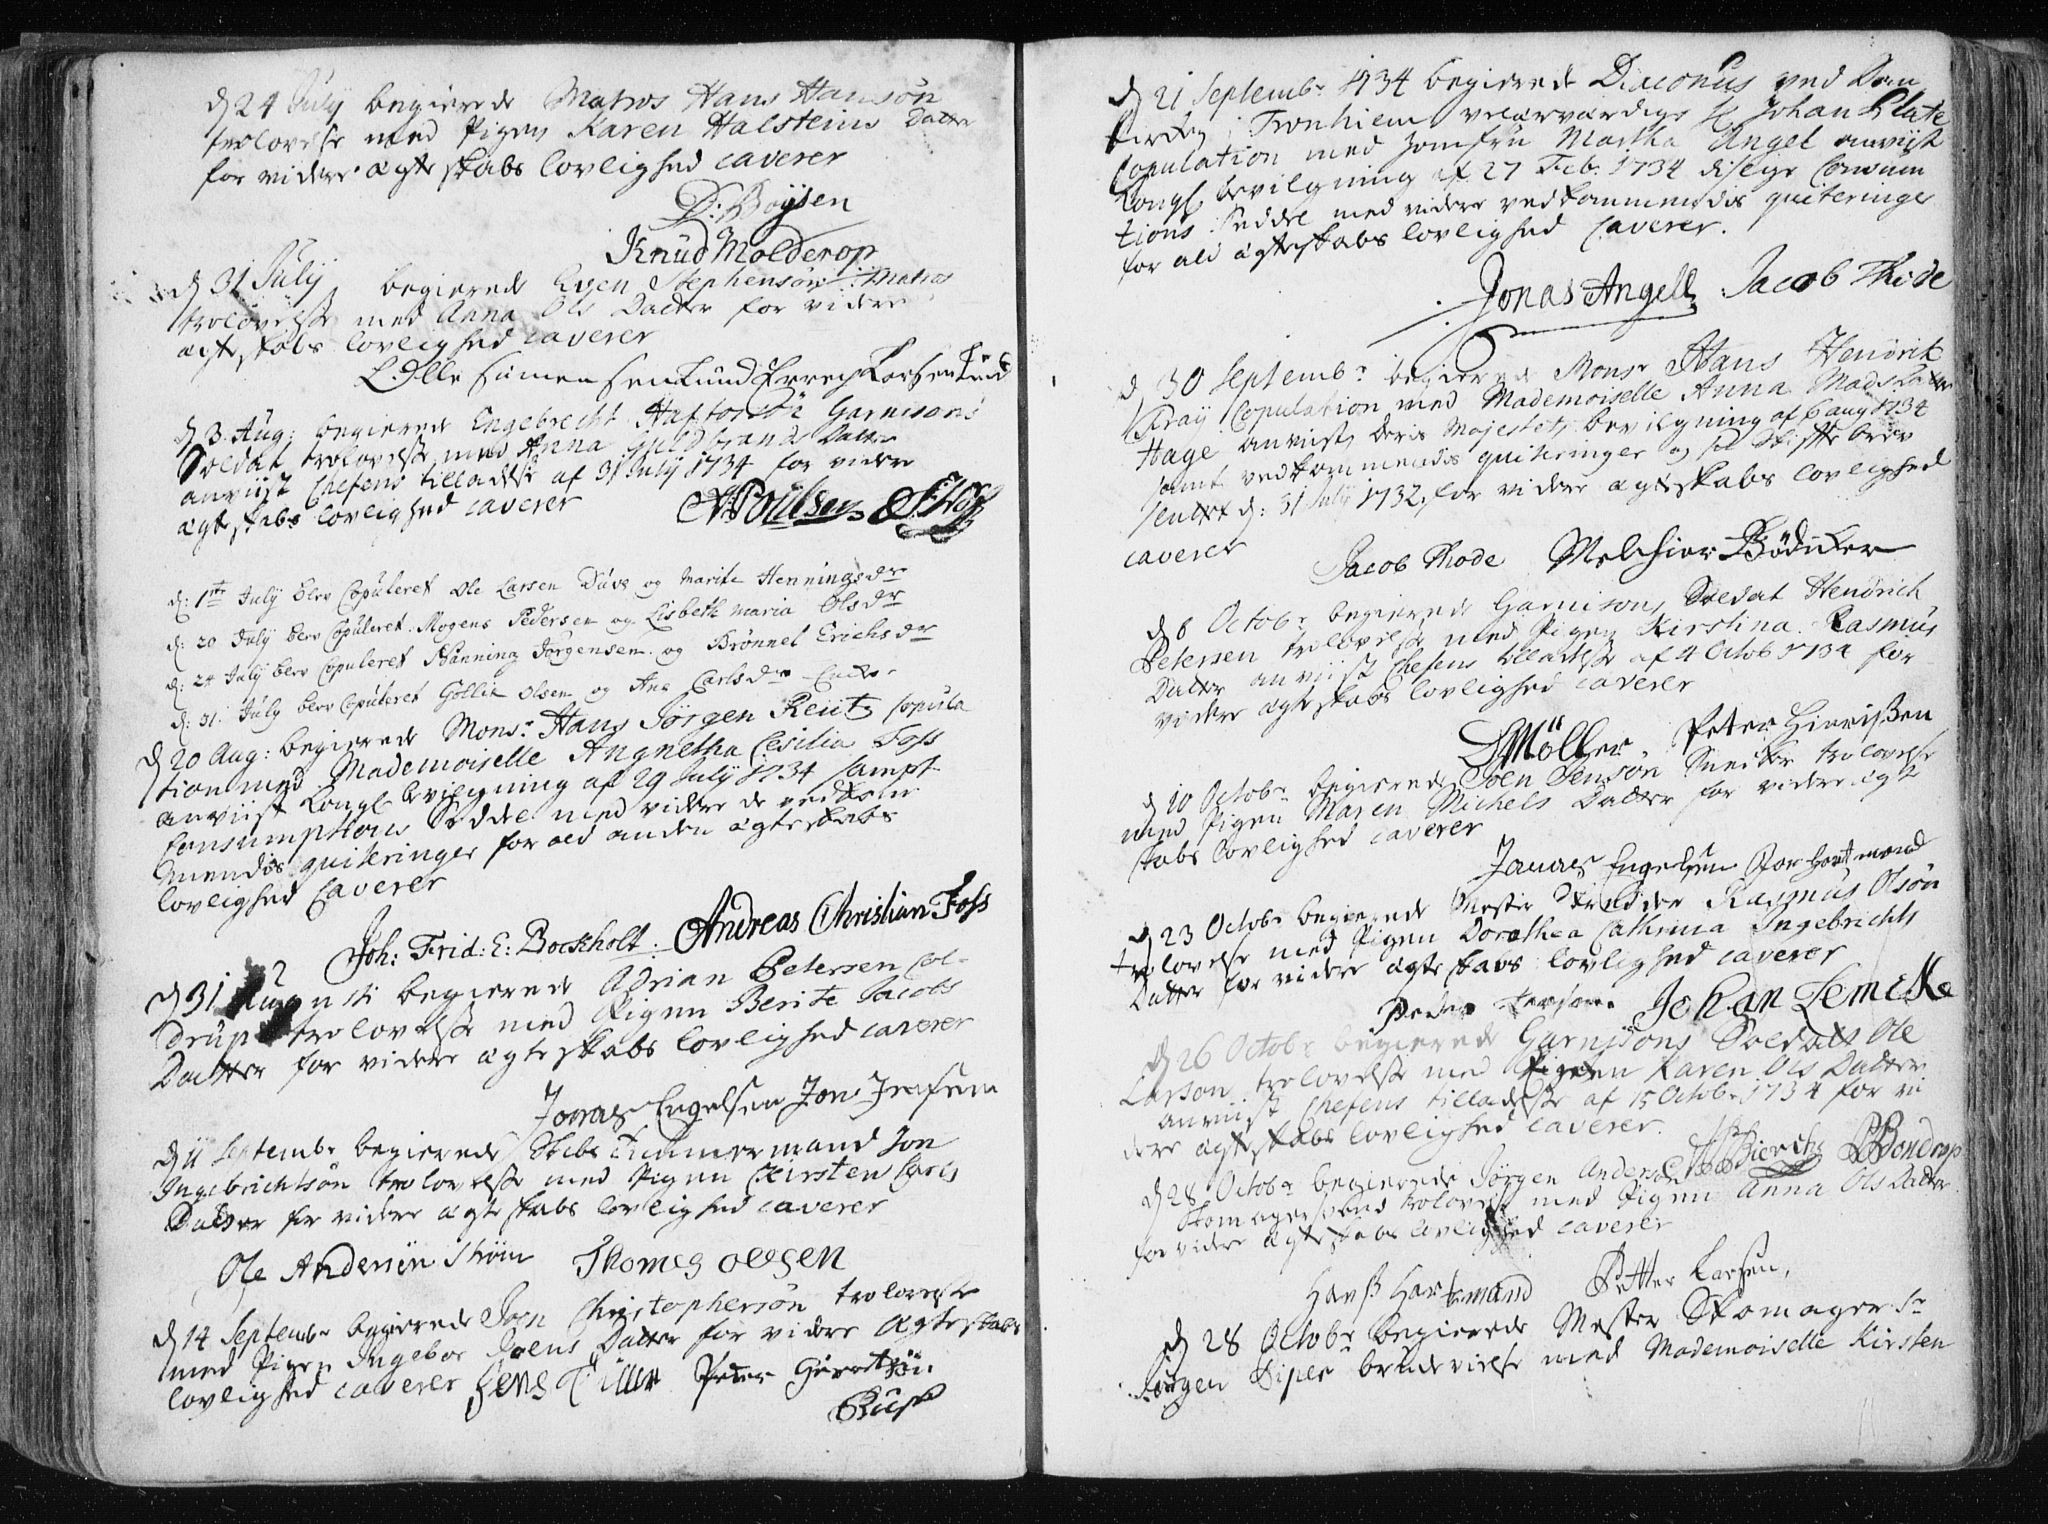 d 24 July begierede Matros Hans Hansøn
trolovelse med Pigen Karen Halsteins Datter
for videre ægteskabs lovlighed caverer
D: Boÿsen
Knud Molderop
d 31 July begierede Even Stephensøn Matros
trolovelse med Anna Ols Datter for videre
ægteskabs lovlighed caverer
Olle Simensen Lund
d 3. Aug: begierede Engebrecht Garnisons
Soldat trolovelse med Anna Guldbrands Datter
anviist Chefens tilladelse af 31 July 1734 for videre
ægteskabs lovlighed caverer
d: 1ste July blev Copuleret Ole Larsen Due og Marite Henningsdr
d: 20 July blev Copuleret Mogens Pedersen og Lisbeth Maria Olsdr
d: 24 July blev Copuleret Henning Jørgensen og Brønnel Erichsdr
d: 31. July blev Copuleret Gollik Olsen og Ane Carlsdr Encke.
d 20 Aug: begierede Monsr Hans Jørgen Reutz Copula
tion med Mademoiselle Angnetha Cesilia Foss
anviist Kongl bevilgning af 29 July 1734 sampt
Consumptions Seddel med videre de vedkom
mendis quiteringer for ald anden ægteskabs
lovlighed Caverer
Joh: Frid: E: Bockholt. Andreas Christian Foss
d 31 Augusti begierede Adrian Petersen Col-
drup trolovelse med Pigen Berite Jacobs
Datter for videre ægteskabs lovlighed caverer
Jonas Engelsen Jon Jensen
d 11 Septembr begierede Skibs Timmermand Jon
Ingebrichtsøn trolovelse med Pigen Kirsten Carls
Datter for videre ægteskabs lovlighed caverer
Ole Andersen Strøm Thomes oelsen
d 14 Septembr begierede Joen Christophersøn trolovelse
med Pigen Ingebor Joens Datter for videre ægteskabs
lovlighed caverer Jens Tiller Peter Giertsøn
Buch
d 21 Septembr 1734 begierede Diaconus ved Dom
kirken i Tronhiem velærværdige Hr Johan Plate
Copulation med Jomfru Martha Angel anviist
Kongl bevilgning af 27 Feb. 1734 disligeConsum
tions Seddel med videre vedkommendis quiteringer
for ald ægteskabs lovlighed Caverer.
Jonas Angell Jacob Thode
d 30 Septembr begierede Monsr Hans Henrik
Kraÿ Copulation med Mademoiselle Anna Mads Datter
Hage anviist deris Majestets bevilgning af 6 aug 1734
samt vedkommendis quiteringer og Skiftebrev
d: 31 July 1732, for videre ægteskabs lovlighed
caverer
Jacob Thode Melchior Bødicker
d 8 Octobr begierede Garnisons Soldat Hendrich
Petersen trolovelse med Pigen Kirstina Rasmus
Datter anviist Chefens tilladelse af 4 Octob 1734 for
videre ægteskabs lovlighed caverer
SMøller. Peter Hinrichsen
d 10 Octobr begierede Joen Jensøn Snedker trolovelse
med Pigen Maren Michels Datter for videre ægte
skabs lovlighed caverer
Jonas Engelsen Ifor Hartmand
d 23 Octobr begierede Mester Skredder Rasmus Olsøn
trolovelse med Pigen Dorothea Cathrina Ingebrichts
Datter for videre ægteskabs lovlighed caverer
Peder Larsen. Johan Lemcke
d 26 Octobr begierede Garnisons Soldatt Ole
Larson trolovelse med Pigen Karen Ols Datter
anviist Chefens tilladelse af 15 Octobr 1734 for vi
dere ægteskabs lovlighed caverer.
Bierch BBondrop
d 28 Octobr begierede Jørgen Andersen
Skomagersvend trolovelse med Pigen Anna Ols Datter
for videre ægteskabs lovlighed caverer
Hanß Hartmand Petter Larsen,
d 28 Octobr begierede Mester Skomager Sr
Jørgen Piper brudevielse med Mademoiselle Kirsten